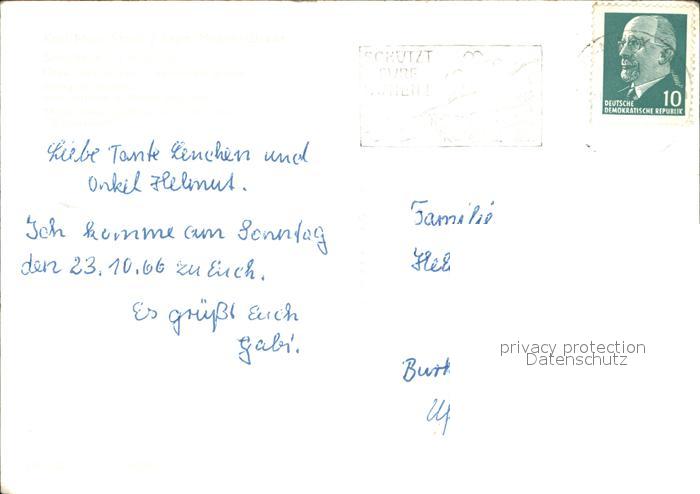 SCHÜTZT
EURE
Liebe Tante Lenchen und
Onkel Helmut.
Ich komme am Sonntag
den 23.10.66 zu Euch.
Es grüßt Euch
Gabi.
10
DEUTSCHE
DEMOKRATISCHE REPUBLIK
Familie
Hel
Burk
privacy protection
Datenschutz